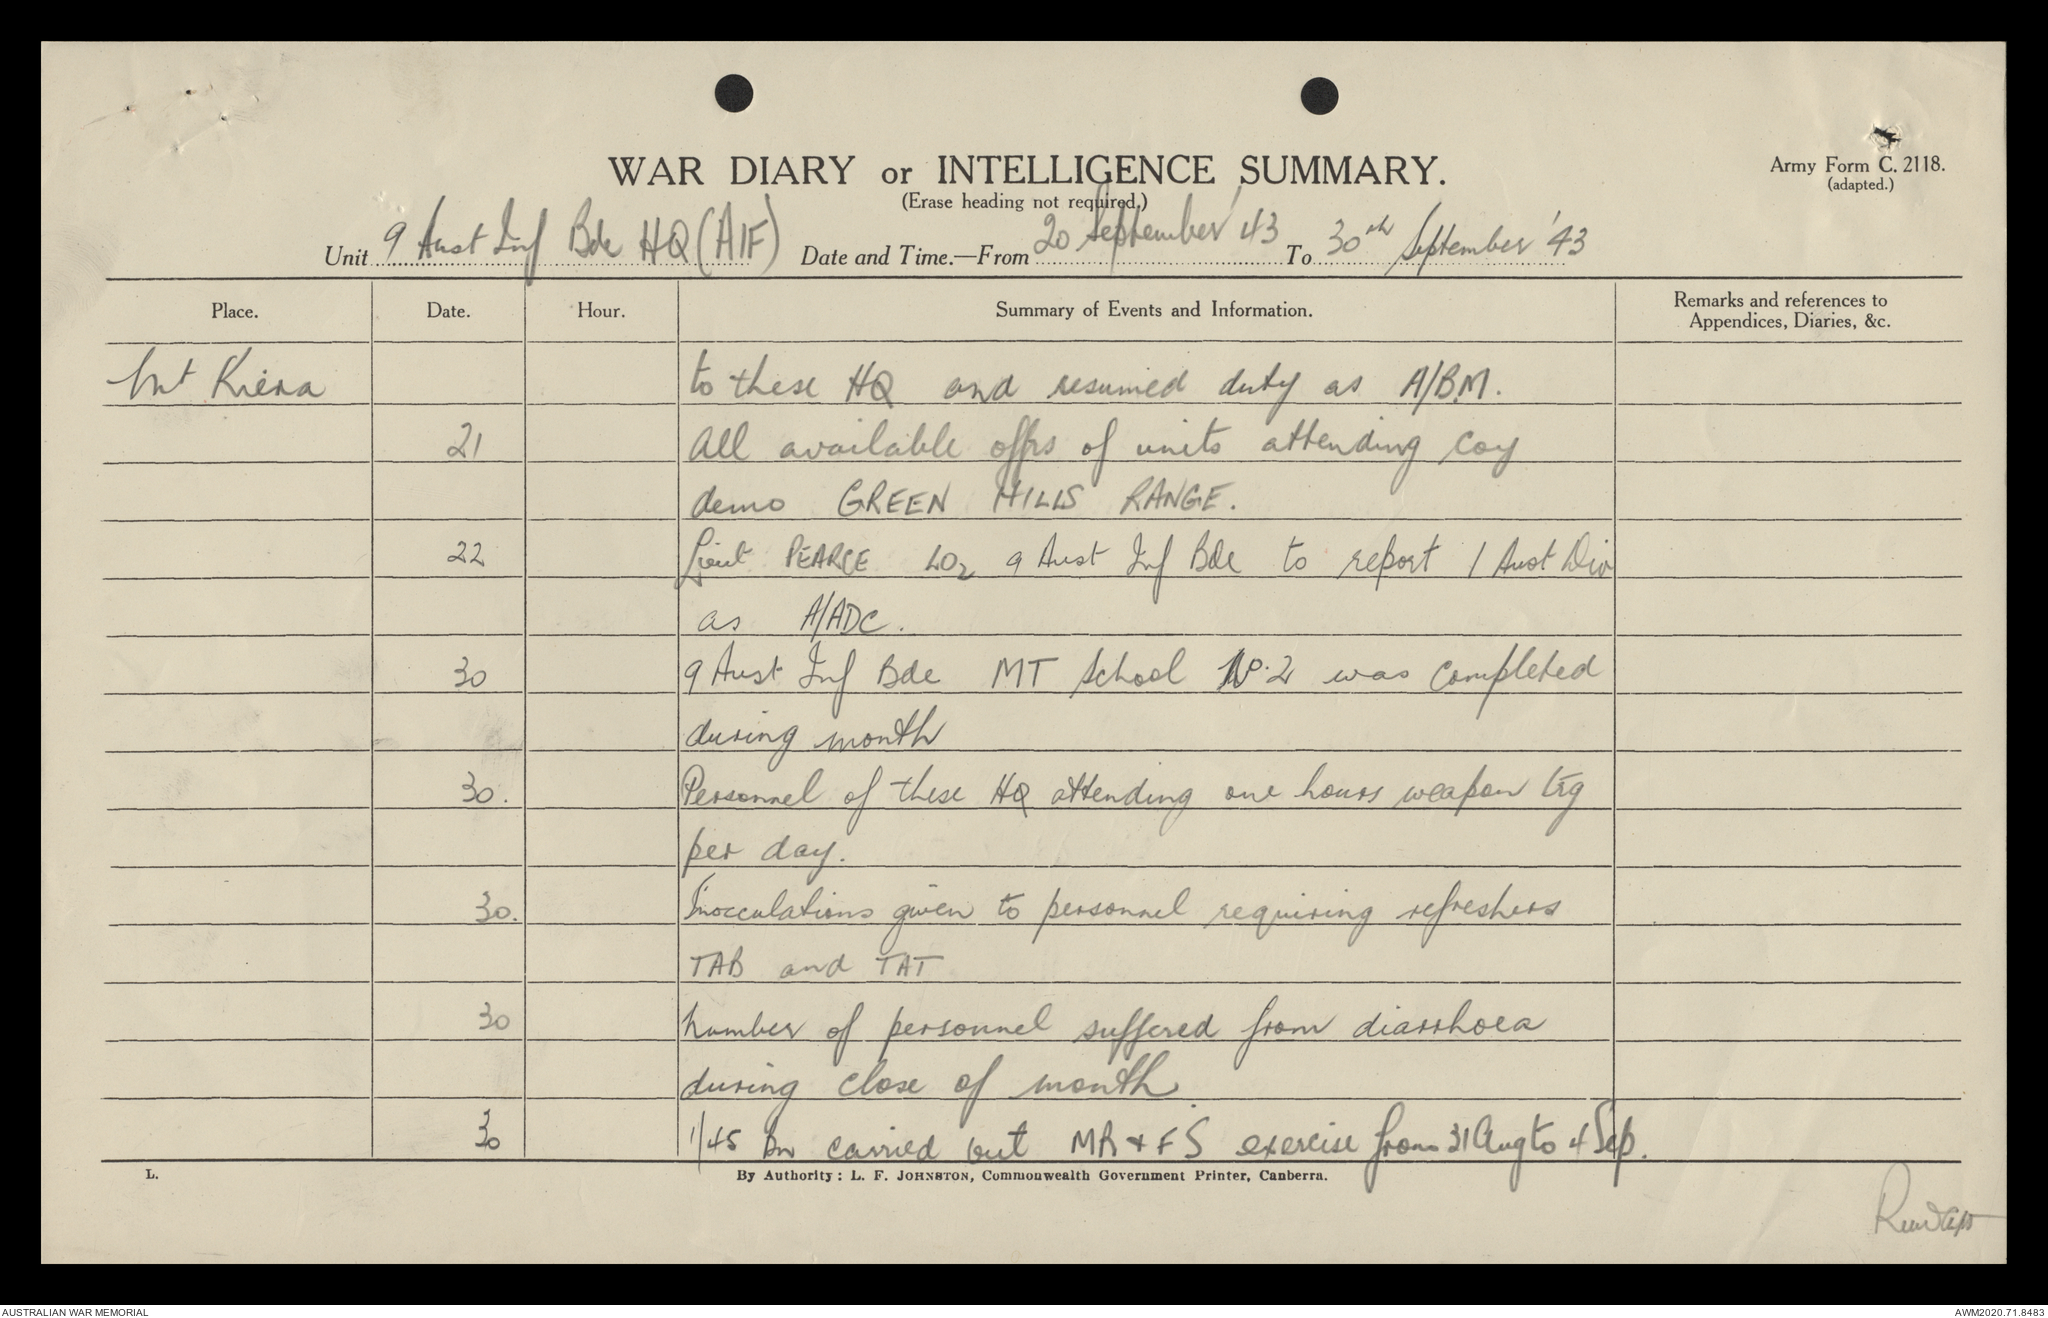 WAR DIARY or INTELLIGENCE SUMMARY.
Army Form C. 2118.
(adapted.)
(Erase heading not required.)
Unit 9 Aust Inf Bde HQ (AIF) Date and Time.—From 20 September '43 To 30th September '43
Place. Date. Hour. Summary of Events and Information. Remarks and references to
Appendices, Diaries, &c.
Mt Kiera to these HQ and resumed duty as A/B.M.
21 All available offrs of units attending coy
demo GREEN HILLS RANGE.
22 Lieut PEARCE LO2 9 Aust Inf Bde to report 1 Aust Div
as A/ADC.
30 9 Aust Inf Bde MT School No. 2 was completed
during month
30. Personnel of these HQ attending one hours weapon trg
per day.
30. Inocculations given to personnel requiring refreshers
TAB and TAT
30 Number of personnel suffered from diarrhoea
during close of month.
30 1/45 Bn carried out MR + FS exercise from 31 Aug to 4 Sep.
L. By Authority: L. F. JOHNSTON, Commonwealth Government Printer, Canberra.
AUSTRALIAN WAR MEMORIAL
AWM2020.71.8483